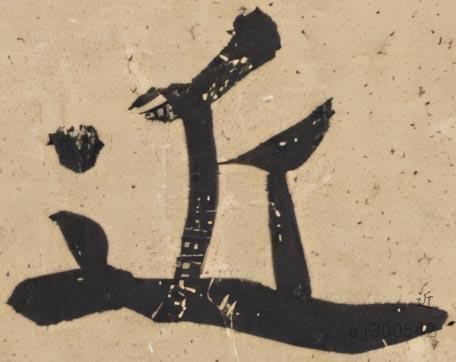 近
近
aj3005